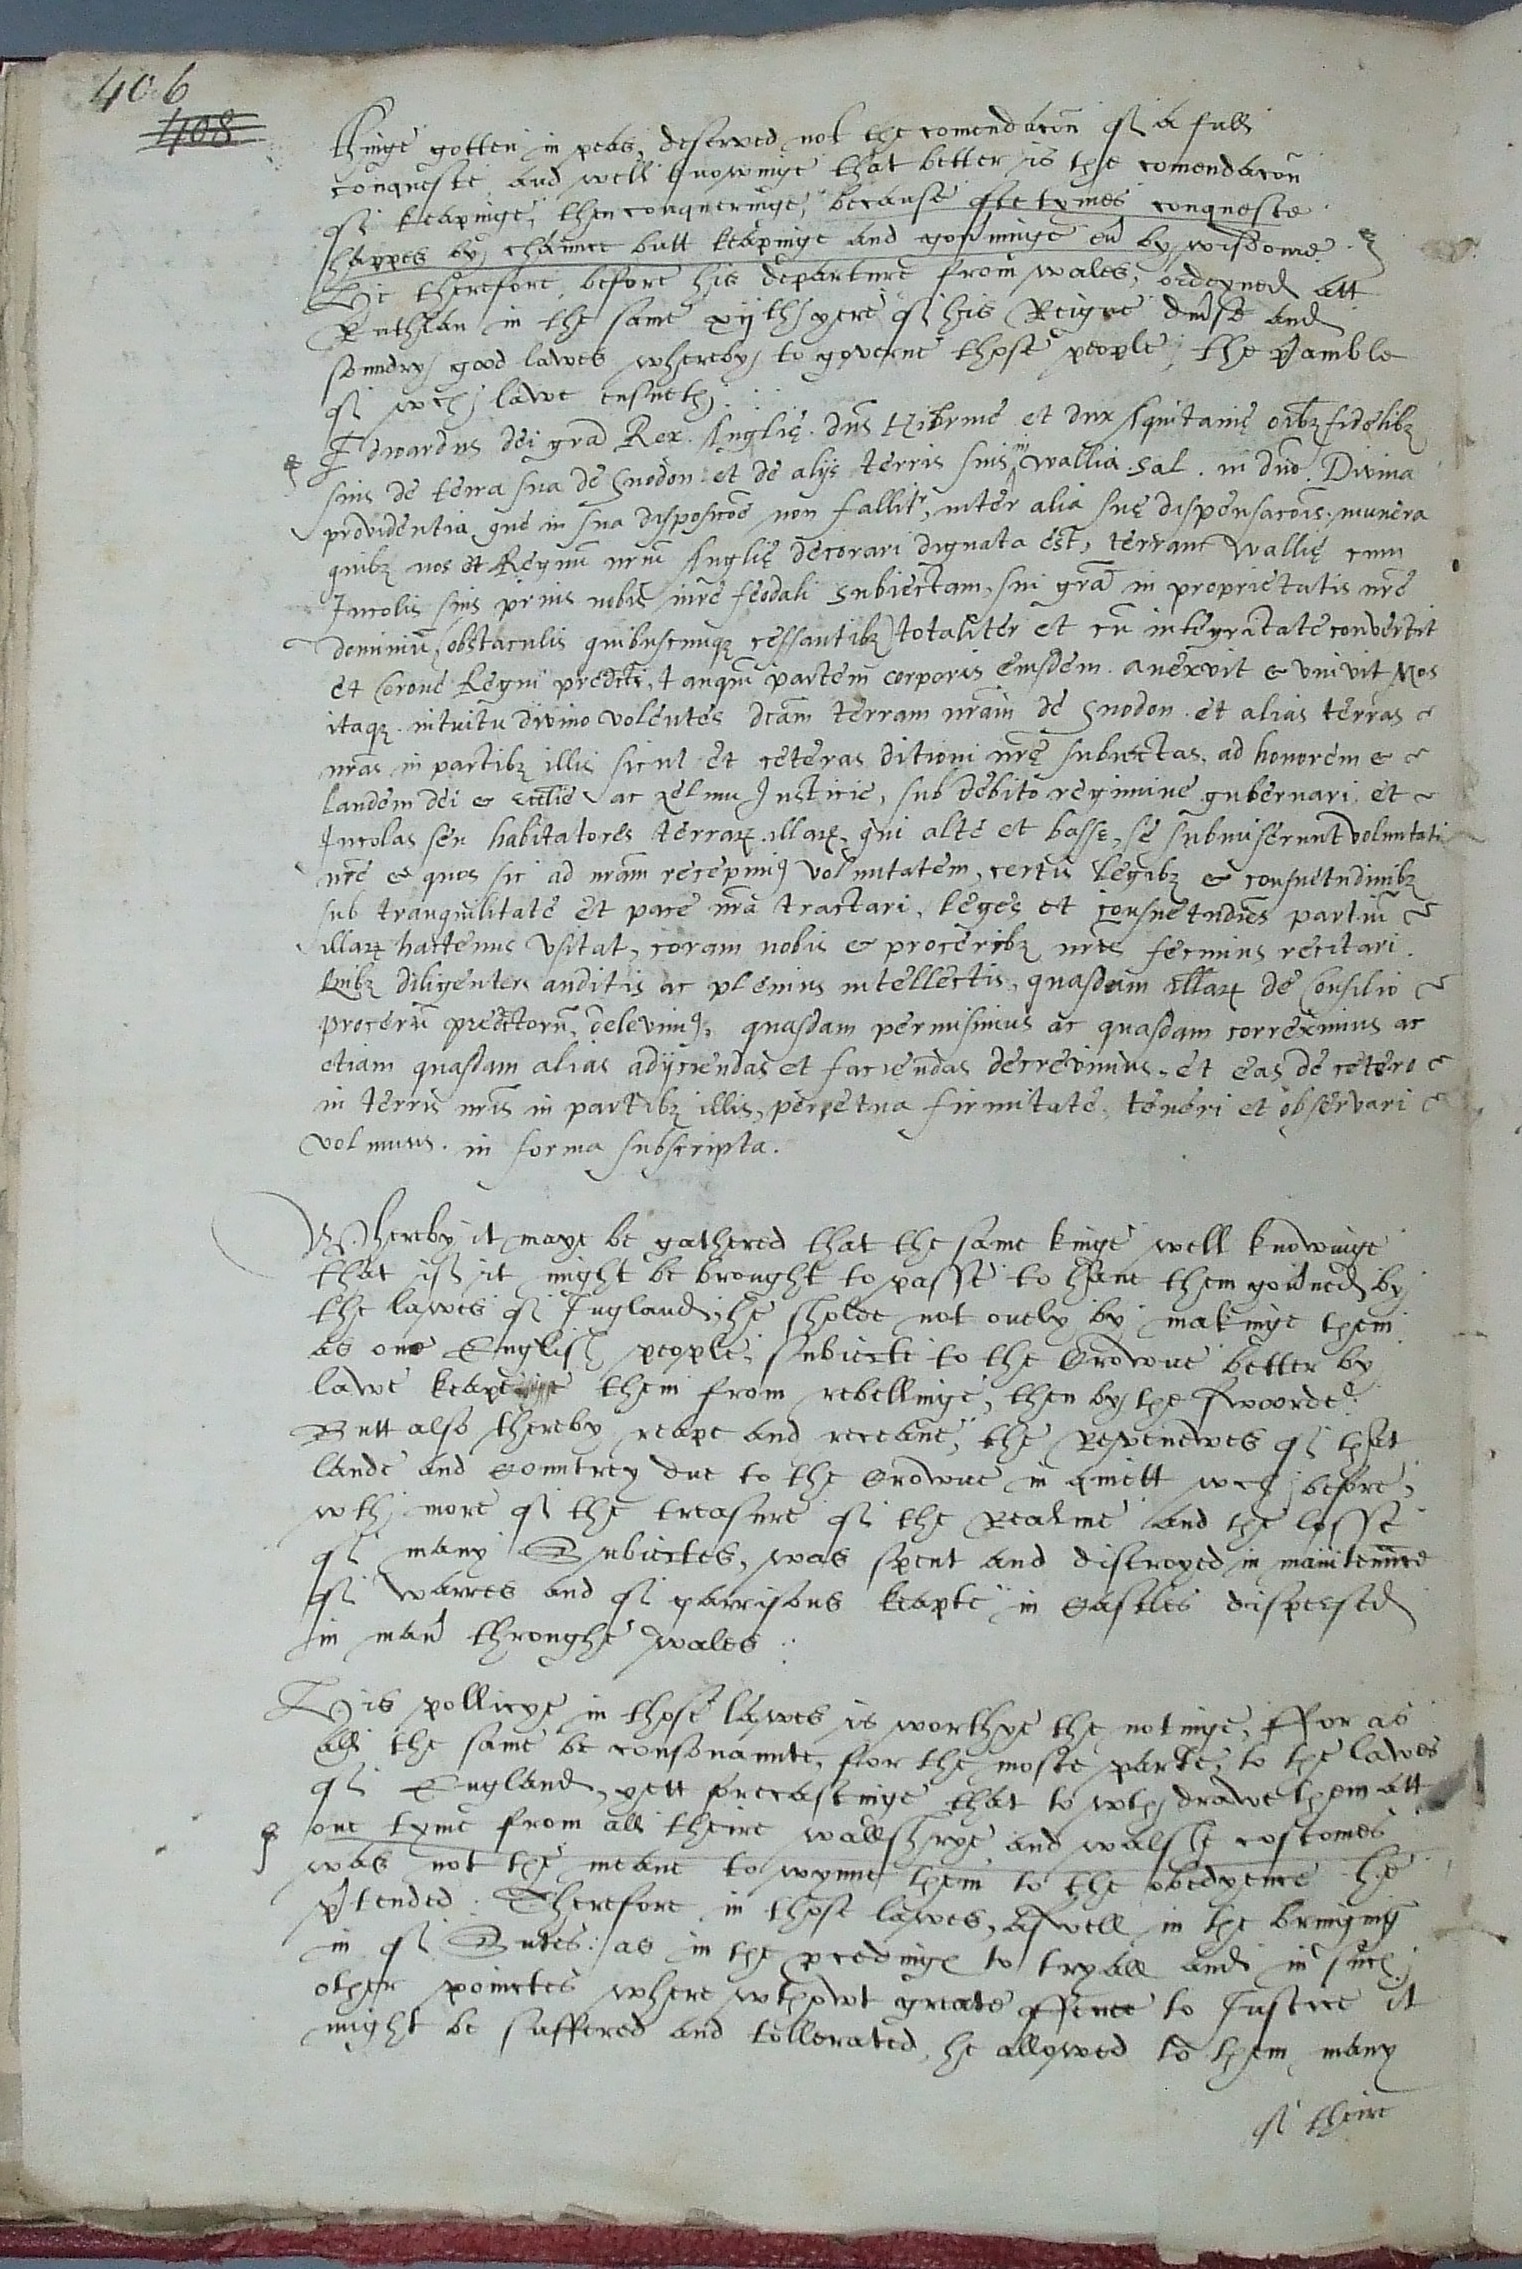 406
408
thinge gotten in peas, deserved not the comendacōn of a full
conqueste and well knowinge that better is the comendacōn
of keapinge, then conqueringe, because ofte tymes conqueste
happes by chaunce butt keapinge and gov'ninge ev' by wisdome.
He therefore, before his departure from wales, ordeyned att
Ruthlan in the same xijth yere of his Reigne diu'se and
soundry good lawes whereby to governe those people, the p'amble
of wch lawe ensueth.
Edwardus dei gra Rex Anglię dn̄s Hibernię et dux Aquitanię oībȝ fidelibȝ
suis de terra sua de Snodon et de alijs terris suis in wallia Sal. in dn̄o. Divina
providentia quę in sua disposicōe non fallitr, inter alia suę dispensacōis munera
quibȝ nos et Regnū nr̄um Anglię decorari dignata est, terram Wallię cum
Incolis suis prius nobis iure feodali Subiectam, sui gra in proprietatis nr̄e
dominiū, obstaculis quibuscunqȝ cessantibȝ totaliter et cū integritate convertit
et Coronę Regni predicti, tanquā partem corporis eiusdem anexvit & vnivit Nos
itaqȝ intuitu divino volentes dcām terram nr̄am de Snodon et alias terras
nr̄as in partibȝ illis sicut et ceteras ditioni nr̄ę subiectas, ad honorem &
laudem dei & ecclīe ac zelum Justicie, sub debito regimine gubernari et
Incolas seu habitatores terrarȝ illarȝ, qui alte et basse, se submiserunt voluntati
nr̄e & quos sic ad nr̄am recepimȝ voluntatem, certis legibȝ & consuetudinibȝ
sub tranquilitate et pace nr̄a tractari, leges et consuetudīes partiū
illarȝ hactenus vsitat, coram nobis & proceribȝ nr̄is fecimus recitari.
Quibȝ diligenter auditis ac plenius intellectis, quasdam illarȝ de Consilio
procerū predictorū, delevimȝ, quasdam permisimus ac quasdam correximus ac
etiam quasdam alias adyciendas et faciendas decrevimus, et eas de cetero
in terris nr̄is in partibȝ illis, perpetua firmitate, teneri et observari
volumus. in forma subscripta.
Whereby it maye be gathered that the same kinge well knowinge
that if it might be brought to passe to have them gov'ned by
the lawes of Ingland, he sholde not onely by makinge them
as one English people, subiecte to the Crowne better by
lawe keape them from rebellinge, then by the swoorde:
Butt also thereby reape and receaue, the Revenewes of that
lande and Countrey due to the Crowne in quiett wch before,
wth more of the treasure of the Realme and the losse
of many Subiectes, was spent and distroyed in maintenn̄ce
of warres and of garrisons keapte in Castles dispersed
in man' throughe wales:
His pollicye in those lawes is worthye the notinge, ffor as
all the same be consonannte, for the moste parte, to the lawes
of England, yett forecastinge that to wthdrawe them att
one tyme from all theire wallshrye and walshe costomes
was not the meane to wynne them to the obedyence he
p'tended. Therefore in those lawes, aswell in the bringing
in of Sutes: as in the p'cedinge to tryall and in such
other poinctes where wthowt greate offence to Justice it
might be suffered and tollerated, he allowed to them many
of theire